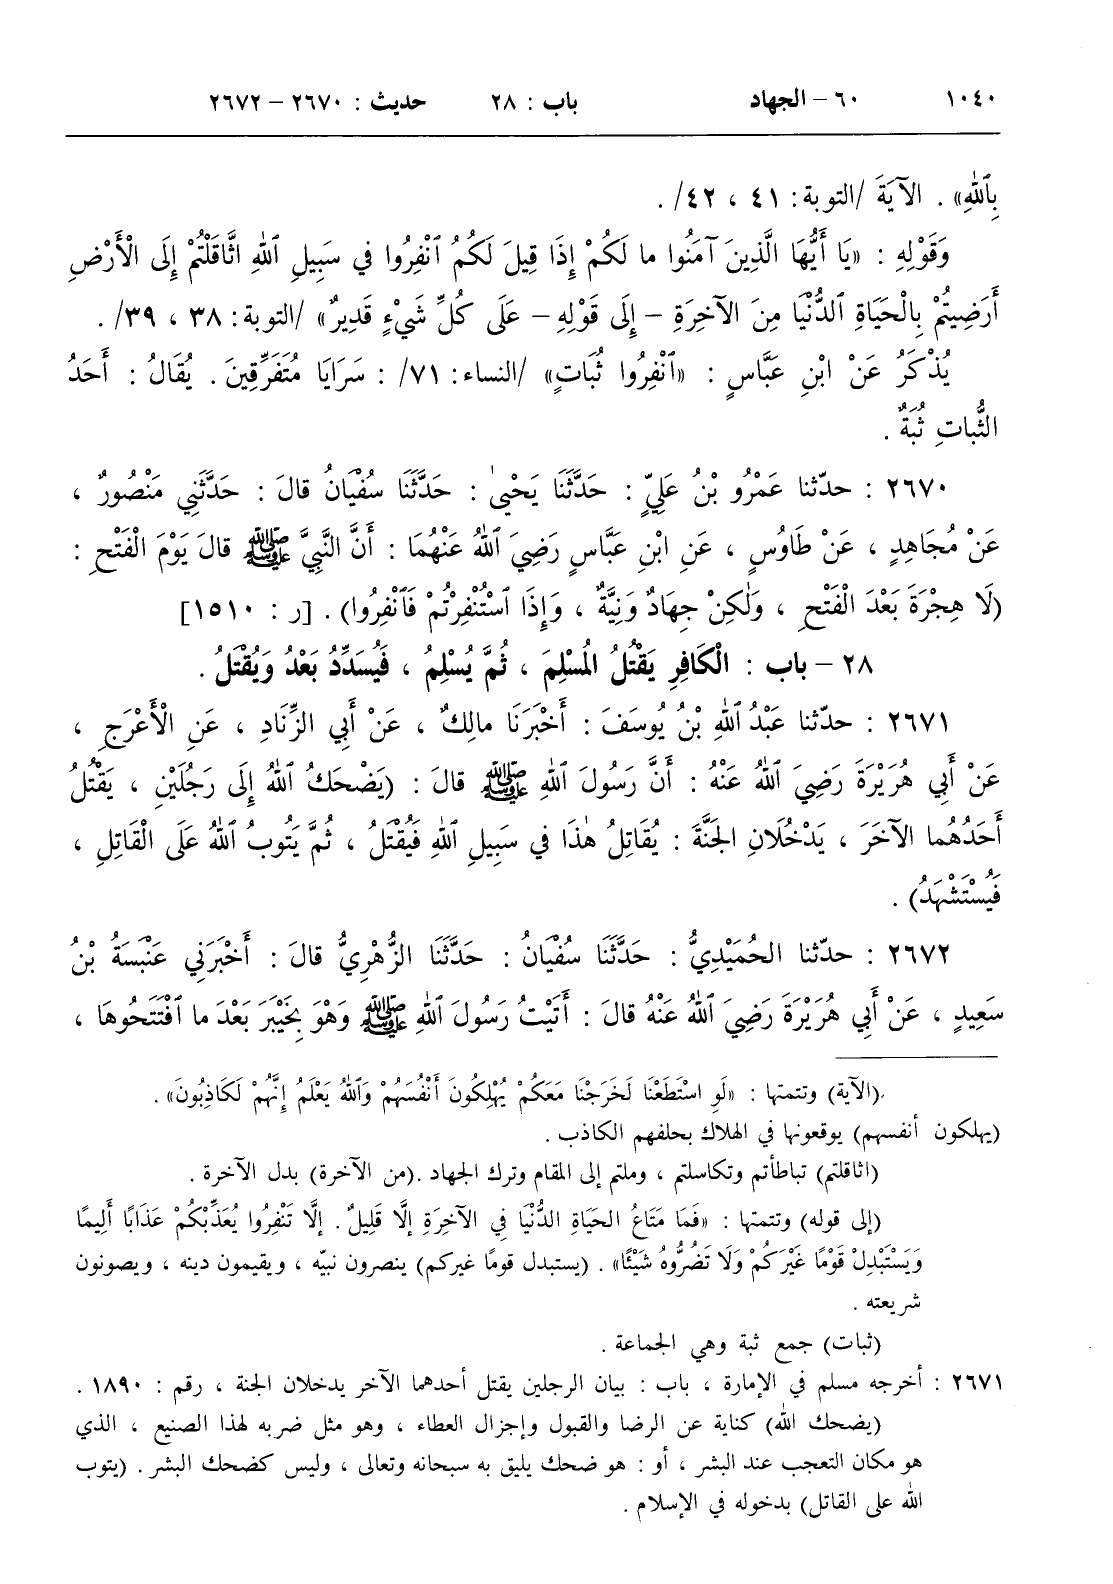 ١٠٤٠ ٦٠ – الجهاد باب : ٢٨ حديث : ٢٦٧٠ – ٢٦٧٢
بِٱللهِ» . الآيَةَ /التوبة: ٤١ ، ٤٢/ .
وَقَوْلِهِ : «يَا أَيُّهَا الَّذِينَ آمَنُوا ما لَكُمْ إِذَا قِيلَ لَكُمُ ٱنْفِرُوا في سَبِيلِ ٱللهِ ٱثَّاقَلْتُمْ إِلَى الْأَرْضِ
أَرَضِيتُمْ بِالْحَيَاةِ ٱلدُّنْيَا مِنَ الآخِرَةِ – إِلَى قَوْلِهِ – عَلَى كُلِّ شَيْءٍ قَدِيرٌ» /التوبة: ٣٨ ، ٣٩/ .
يُذْكَرُ عَنْ ابْنِ عَبَّاسٍ : «ٱنْفِرُوا ثُبَاتٍ» /النساء: ٧١/ : سَرَايَا مُتَفَرِّقِينَ . يُقَالُ : أَحَدُ
الثُّبَاتِ ثُبَةٌ .
٢٦٧٠ : حدّثنا عَمْرُو بْنُ عَلِيٍّ : حَدَّثَنَا يَحْيىٰ : حَدَّثَنَا سُفْيَانُ قالَ : حَدَّثَنِي مَنْصُورٌ ،
عَنْ مُجَاهِدٍ ، عَنْ طَاوُسٍ ، عَنِ ابْنِ عَبَّاسٍ رَضِيَ ٱللهُ عَنْهُمَا : أَنَّ النَّبِيَّ ﷺ قالَ يَوْمَ الْفَتْحِ :
(لَا هِجْرَةَ بَعْدَ الْفَتْحِ ، وَلٰكِنْ جِهَادٌ وَنِيَّةٌ ، وَإِذَا ٱسْتُنْفِرْتُمْ فَٱنْفِرُوا) . [ر : ١٥١٠]
٢٨ – باب : الْكَافِرِ يَقْتُلُ الْمُسْلِمَ ، ثُمَّ يُسْلِمُ ، فَيُسَدِّدُ بَعْدُ وَيُقْتَلُ .
٢٦٧١ : حدّثنا عَبْدُ ٱللهِ بْنُ يُوسَفَ : أَخْبَرَنَا مالِكٌ ، عَنْ أَبِي الزِّنَادِ ، عَنِ الْأَعْرَجِ ،
عَنْ أَبِي هُرَيْرَةَ رَضِيَ ٱللهُ عَنْهُ : أَنَّ رَسُولَ ٱللهِ ﷺ قالَ : (يَضْحَكُ ٱللهُ إِلَى رَجُلَيْنِ ، يَقْتُلُ
أَحَدُهُما الآخَرَ ، يَدْخُلَانِ الْجَنَّةَ : يُقَاتِلُ هٰذَا في سَبِيلِ ٱللهِ فَيُقْتَلُ ، ثُمَّ يَتُوبُ ٱللهُ عَلَى الْقَاتِلِ ،
فَيُسْتَشْهَدُ) .
٢٦٧٢ : حدّثنا الحُمَيْدِيُّ : حَدَّثَنَا سُفْيَانُ : حَدَّثَنَا الزُّهْرِيُّ قالَ : أَخْبَرَنِي عَنْبَسَةُ بْنُ
سَعِيدٍ ، عَنْ أَبِي هُرَيْرَةَ رَضِيَ ٱللهُ عَنْهُ قالَ : أَتَيْتُ رَسُولَ ٱللهِ ﷺ وَهْوَ بِخَيْبَرَ بَعْدَ ما ٱفْتَتَحُوهَا ،
(الآية) وتتمتها : «لَوِ اسْتَطَعْنَا لَخَرَجْنَا مَعَكُمْ يُهْلِكُونَ أَنْفُسَهُمْ وَٱللهُ يَعْلَمُ إِنَّهُمْ لَكَاذِبُونَ» .
(يهلكون أنفسهم) يوقعونها في الهلاك بحلفهم الكاذب .
(اثاقلتم) تباطأتم وتكاسلتم ، وملتم إلى المقام وترك الجهاد . (من الآخرة) بدل الآخرة .
(إلى قوله) وتتمتها : «فَمَا مَتَاعُ الحَيَاةِ الدُّنْيَا فِي الآخِرَةِ إِلَّا قَلِيلٌ . إِلَّا تَنْفِرُوا يُعَذِّبْكُمْ عَذَابًا أَلِيمًا
وَيَسْتَبْدِلْ قَوْمًا غَيْرَكُمْ وَلَا تَضُرُّوهُ شَيْئًا» . (يستبدل قومًا غيركم) ينصرون نبيّه ، ويقيمون دينه ، ويصونون
شريعته .
(ثبات) جمع ثبة وهي الجماعة .
٢٦٧١ : أخرجه مسلم في الإمارة ، باب : بيان الرجلين يقتل أحدهما الآخر يدخلان الجنة ، رقم : ١٨٩٠ .
(يضحك الله) كناية عن الرضا والقبول وإجزال العطاء ، وهو مثل ضربه لهذا الصنيع ، الذي
هو مكان التعجب عند البشر ، أو : هو ضحك يليق به سبحانه وتعالى ، وليس كضحك البشر . (يتوب
الله على القاتل) بدخوله في الإسلام .